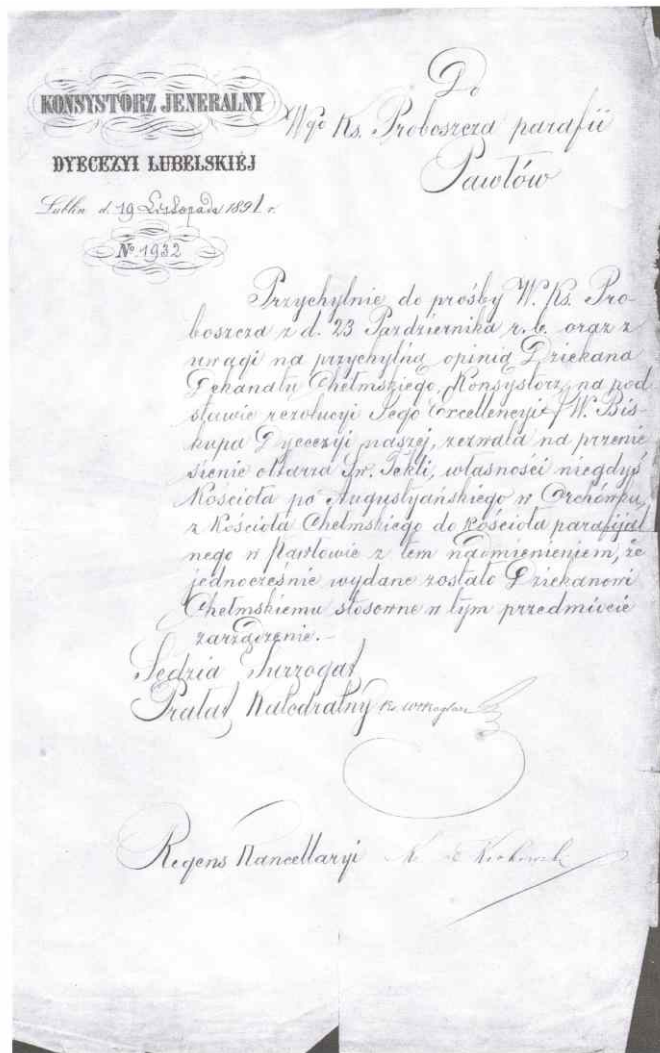 KONSYSTORZ JENERALNY
DYECEZYI LUBELSKIÉJ
Lublin d. 19 Listopada 1891 r.
№ 1932
Do
Wgo Ks. Proboszcza parafii
Pawłów
Przychylnie do prośby W. Ks. Pro-
boszcza z d. 23 Pazdziernika r. b. oraz z
uwagi na przychylną opinią Dziekana
Dekanatu Chełmskiego, Konsystorz, na pod
stawie rezolucyi Jego Excellencyi J W. Bis-
kupa Dyecezyi naszej, zezwala na przenie
sienie ołtarza Św. Tekli, własności niegdyś
Kościoła po Augustyańskiego w Orchówku,
z Kościoła Chełmskiego do kościoła parafijal
nego w Pawłowie z tem nadmienieniem, że
jednocześnie wydane zostało Dziekanowi
Chełmskiemu stosowne w tym przedmiocie
zarządzenie.-
Sędzia Surrogat
Prałat Katedralny Ks.
Regens Kancellaryi